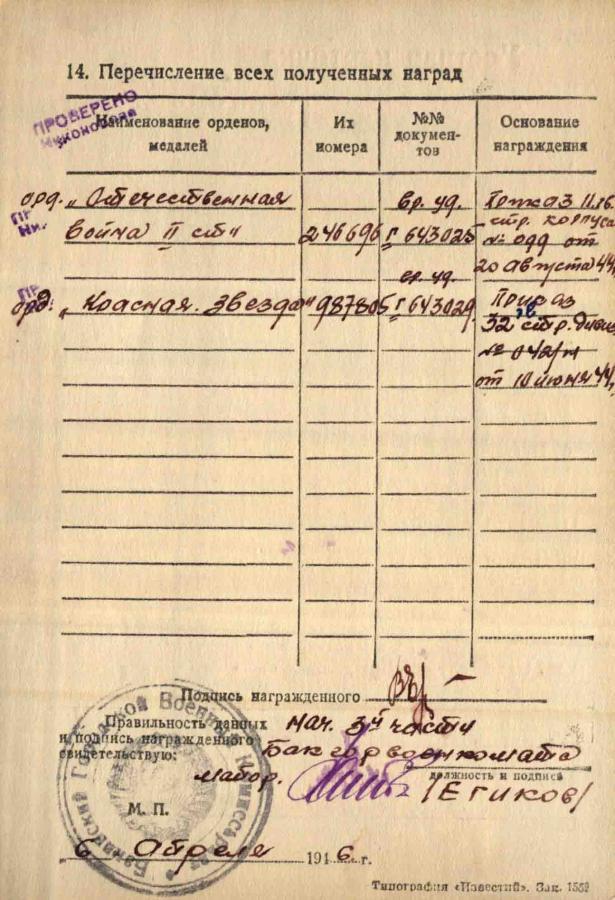 14. Перечисление всех полученных наград
ПРОВЕРЕНО
Наименование орденов, медалей
Их номера
№№ документов
Основание награждения
орд. „Отечественная
вр. уд.
Приказ 11 гв.
Война II ст"
246696
Г 643023
стр. корпуса
от
20 августа 44
орд. „Красная Звезда"
987805
вр. уд.
Г 643029
Приказ
32 гв стр. дивиз
от 10 июня 44
Подпись награжденного
Правильность данных
и подпись награжденного
свидетельствую:
Нач. 3й части
Бакгорвоенкомата
должность и подпись
майор.
/Егиков/
Бакинский Городской Военный Комиссариат
М. П.
6 Апреля 1946 г.
Типография «Известий». Зак. 1552